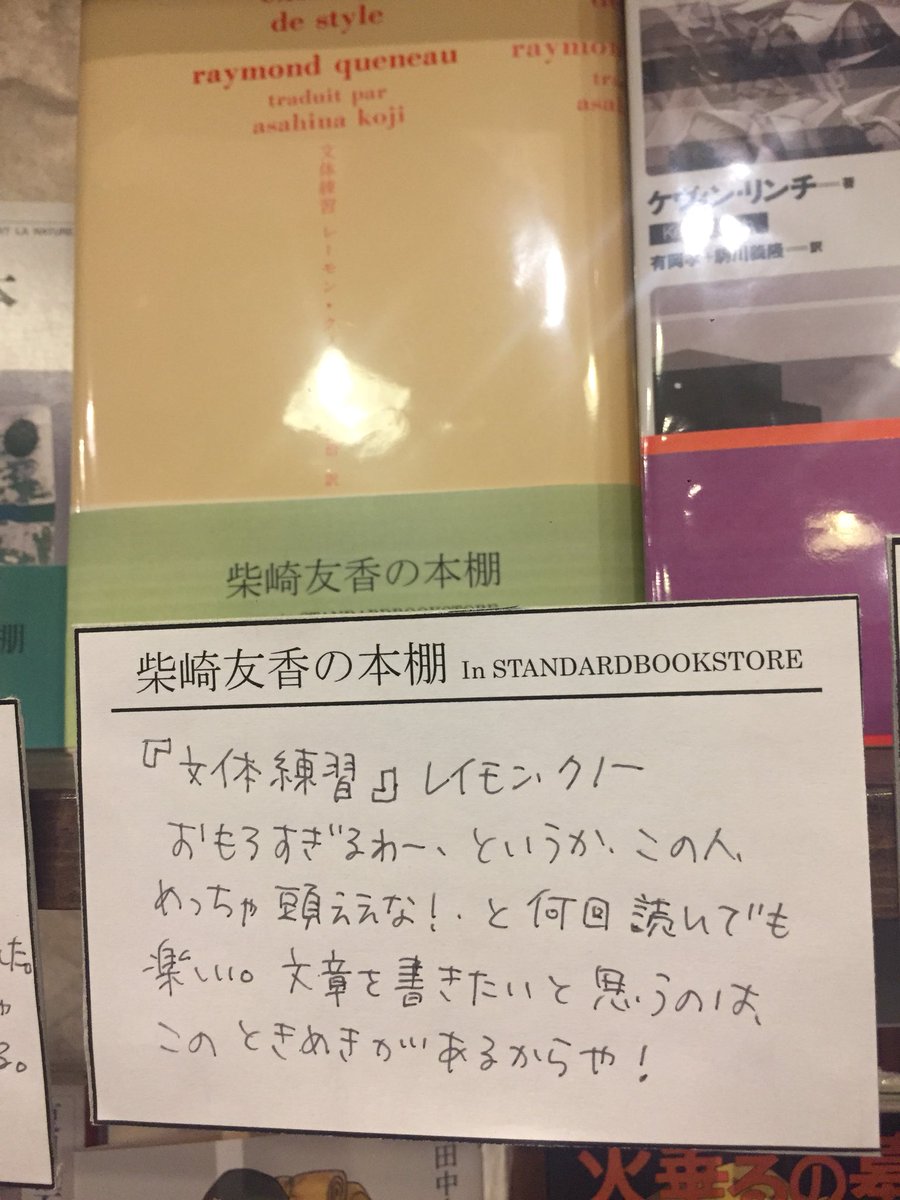 de style
raymond queneau
traduit par
asahina koji
文体練習 レーモン・ク
訳
raymon
asa
ケヴィン・リンチ──著
訳
NT LA NATURE
棚
柴崎友香の本棚
STANDARDBOOKSTORE
柴崎友香の本棚 In STANDARDBOOKSTORE
『文体練習』レイモン、クノー
おもろすぎるわー、というか、この人、
めっちゃ頭ええな！、と何回読んでも
楽しい。文章を書きたいと思うのは、
このときめきがあるからや！
た。
る。
田中
火垂るの墓